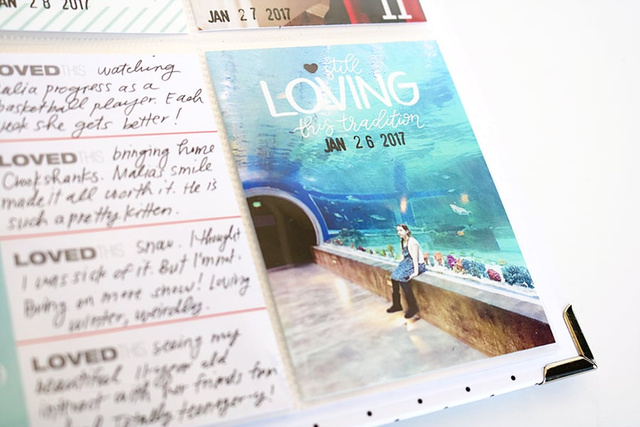 JAN 26 2017
JAN 27 2017
11
LOVED THIS watching
alia progress as a
basketball player. Each
week she gets better!
LOVED THIS bringing home
Crookshanks. Malia's smile
made it all worth it. He is
such a pretty kitten.
LOVED THIS snow. I thought
I was sick of it. But I'm not.
Bring on more snow! Loving
winter, weirdly.
LOVED THIS seeing my
beautiful 11-year old
interact with her friends
Totally teenager-y!
still
LOVING
this tradition
JAN 26 2017